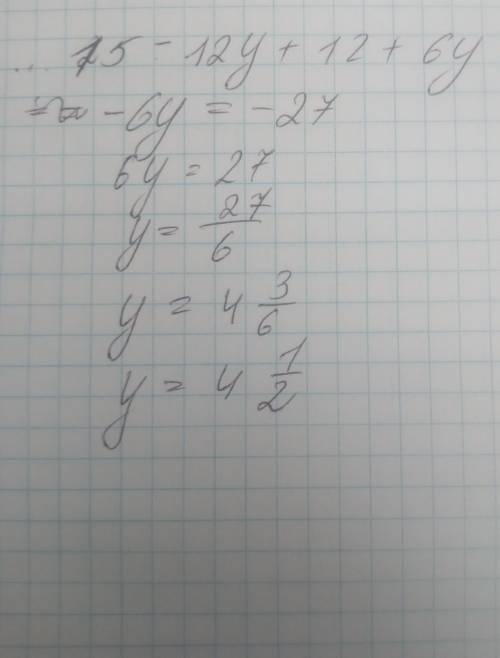 ... 15 - 12y + 12 + 6y
- 6y = - 27
6y = 27
y = 27/6
y = 4 3/6
y = 4 1/2